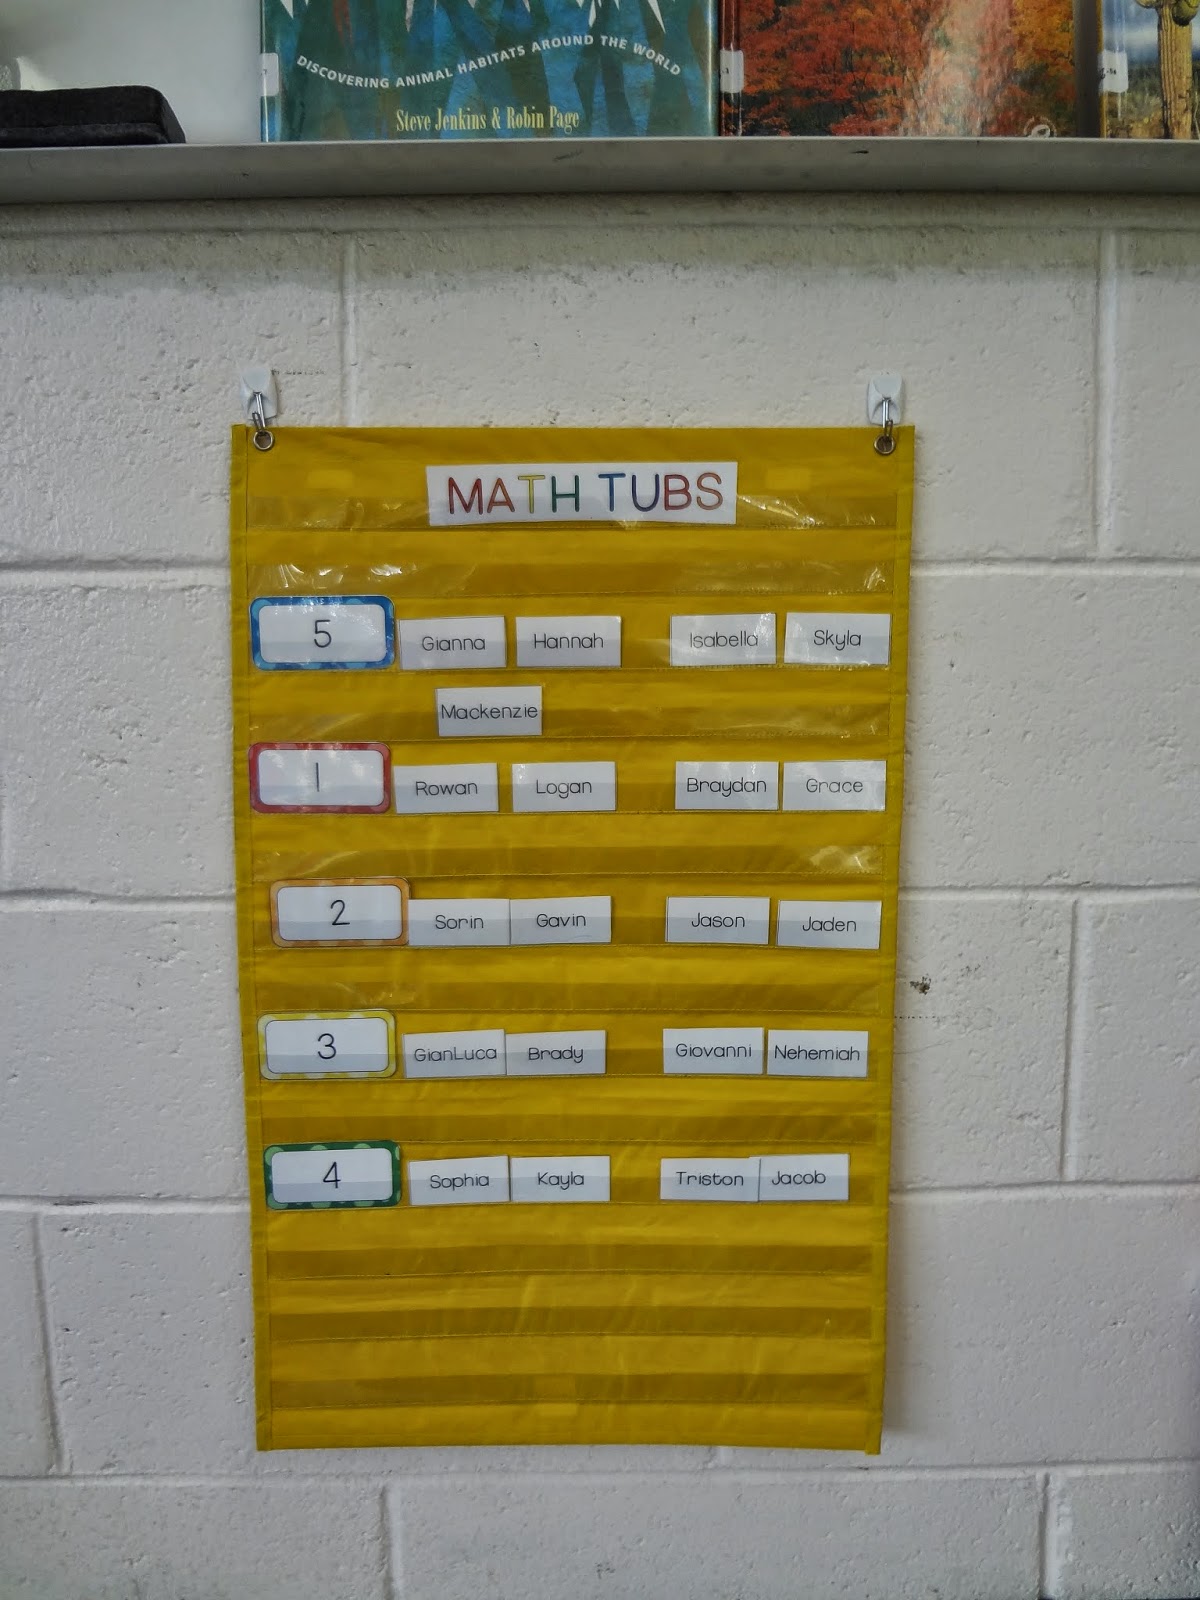 DISCOVERING ANIMAL HABITATS AROUND THE WORLD
Steve Jenkins & Robin Page
MATH TUBS
5 Gianna Hannah Isabella Skyla
Mackenzie
1 Rowan Logan Braydan Grace
2 Sorin Gavin Jason Jaden
3 GianLuca Brady Giovanni Nehemiah
4 Sophia Kayla Triston Jacob